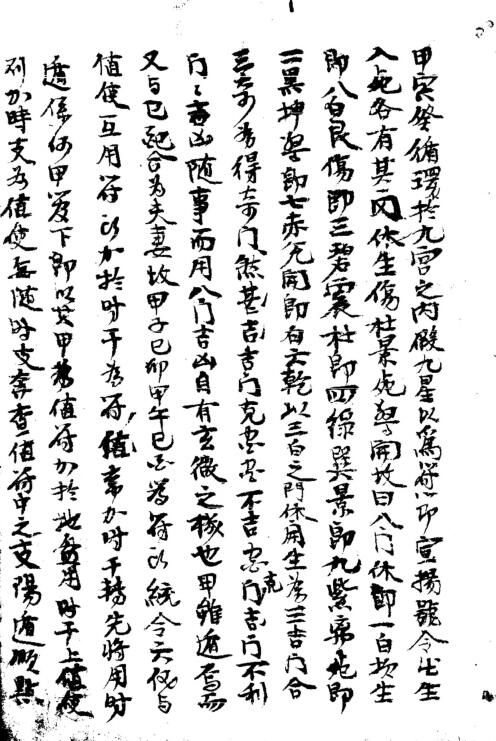 甲寅癸循環於九宮之內假九星以為符印宣揚號令出生
入死各有其門休生傷杜景死驚開故曰八門休即一白坎生
即八白艮傷即三碧震杜即四綠巽景即九紫离死即
二黑坤驚即七赤兌開即六白乾以三白之門休開生為三吉門合
三奇為得奇門然甚吉吉門克宮不吉宮克門吉门不利
门之吉凶随事而用八门吉凶自有玄微之機也甲雖遁焉而
又与己配合為夫妻故甲子己卯甲午己酉為符以統令六儀与
值使互用符以加於时干為符值常加时干轉先將用时
遁係何甲管下即以其甲為值符加於地盤用时干上值使
列加時支為值使無随时支奔查值符中之支陽遁順點